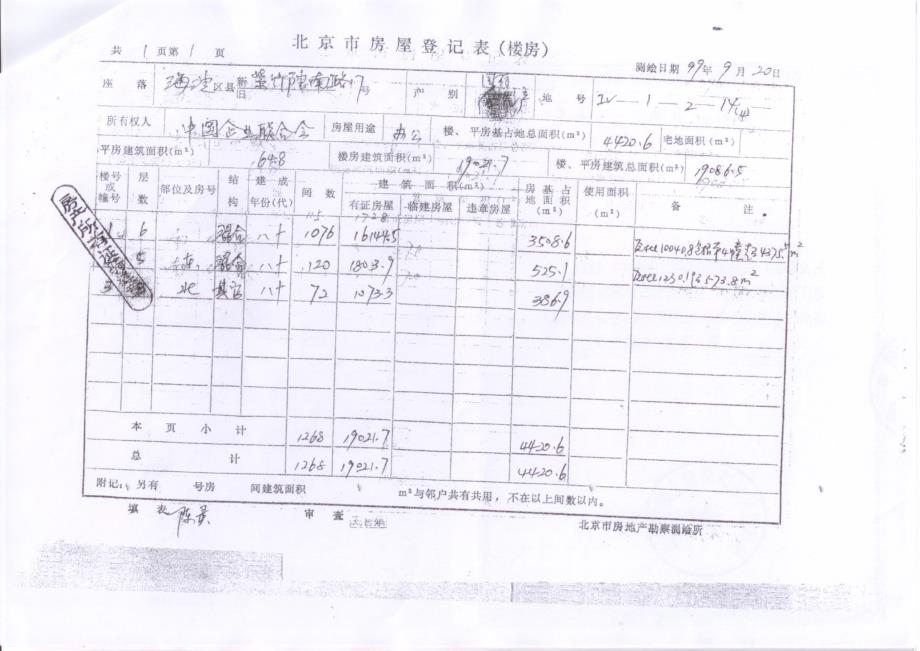 北京市房屋登记表(楼房)
共 1 页第 1 页
测绘日期 97年 9月 20日
座落 海淀区县 新旧 紫竹院南路17号 产别 地号 IV—1—2—14(4)
所有权人 中国企业联合会 房屋用途 办公 楼、平房基占地总面积(m²) 4420.6 宅地面积(m²)
平房建筑面积(m²) 64.8 楼房建筑面积(m²) 19021.7 楼、平房建筑总面积(m²) 19086.5
楼号或幢号 层数 部位及房号 结构 建成年份(代) 间数 建筑面积(m²) 房基占地面积(m²) 使用面积(m²) 备注
有证房屋 临建房屋 违章房屋
1 6 混合 八十 1076 16144.5 3508.6
5 东 混合 八十 120 1803.9 525.1
3 北 其它 八十 72 1073.3 386.9
本页小计 1268 19021.7 4420.6
总计 1268 19021.7 4420.6
附记:另有 号房 间建筑面积 m²与邻户共有共用,不在以上间数以内。
填表 陈景 审查
北京市房地产勘察测绘所